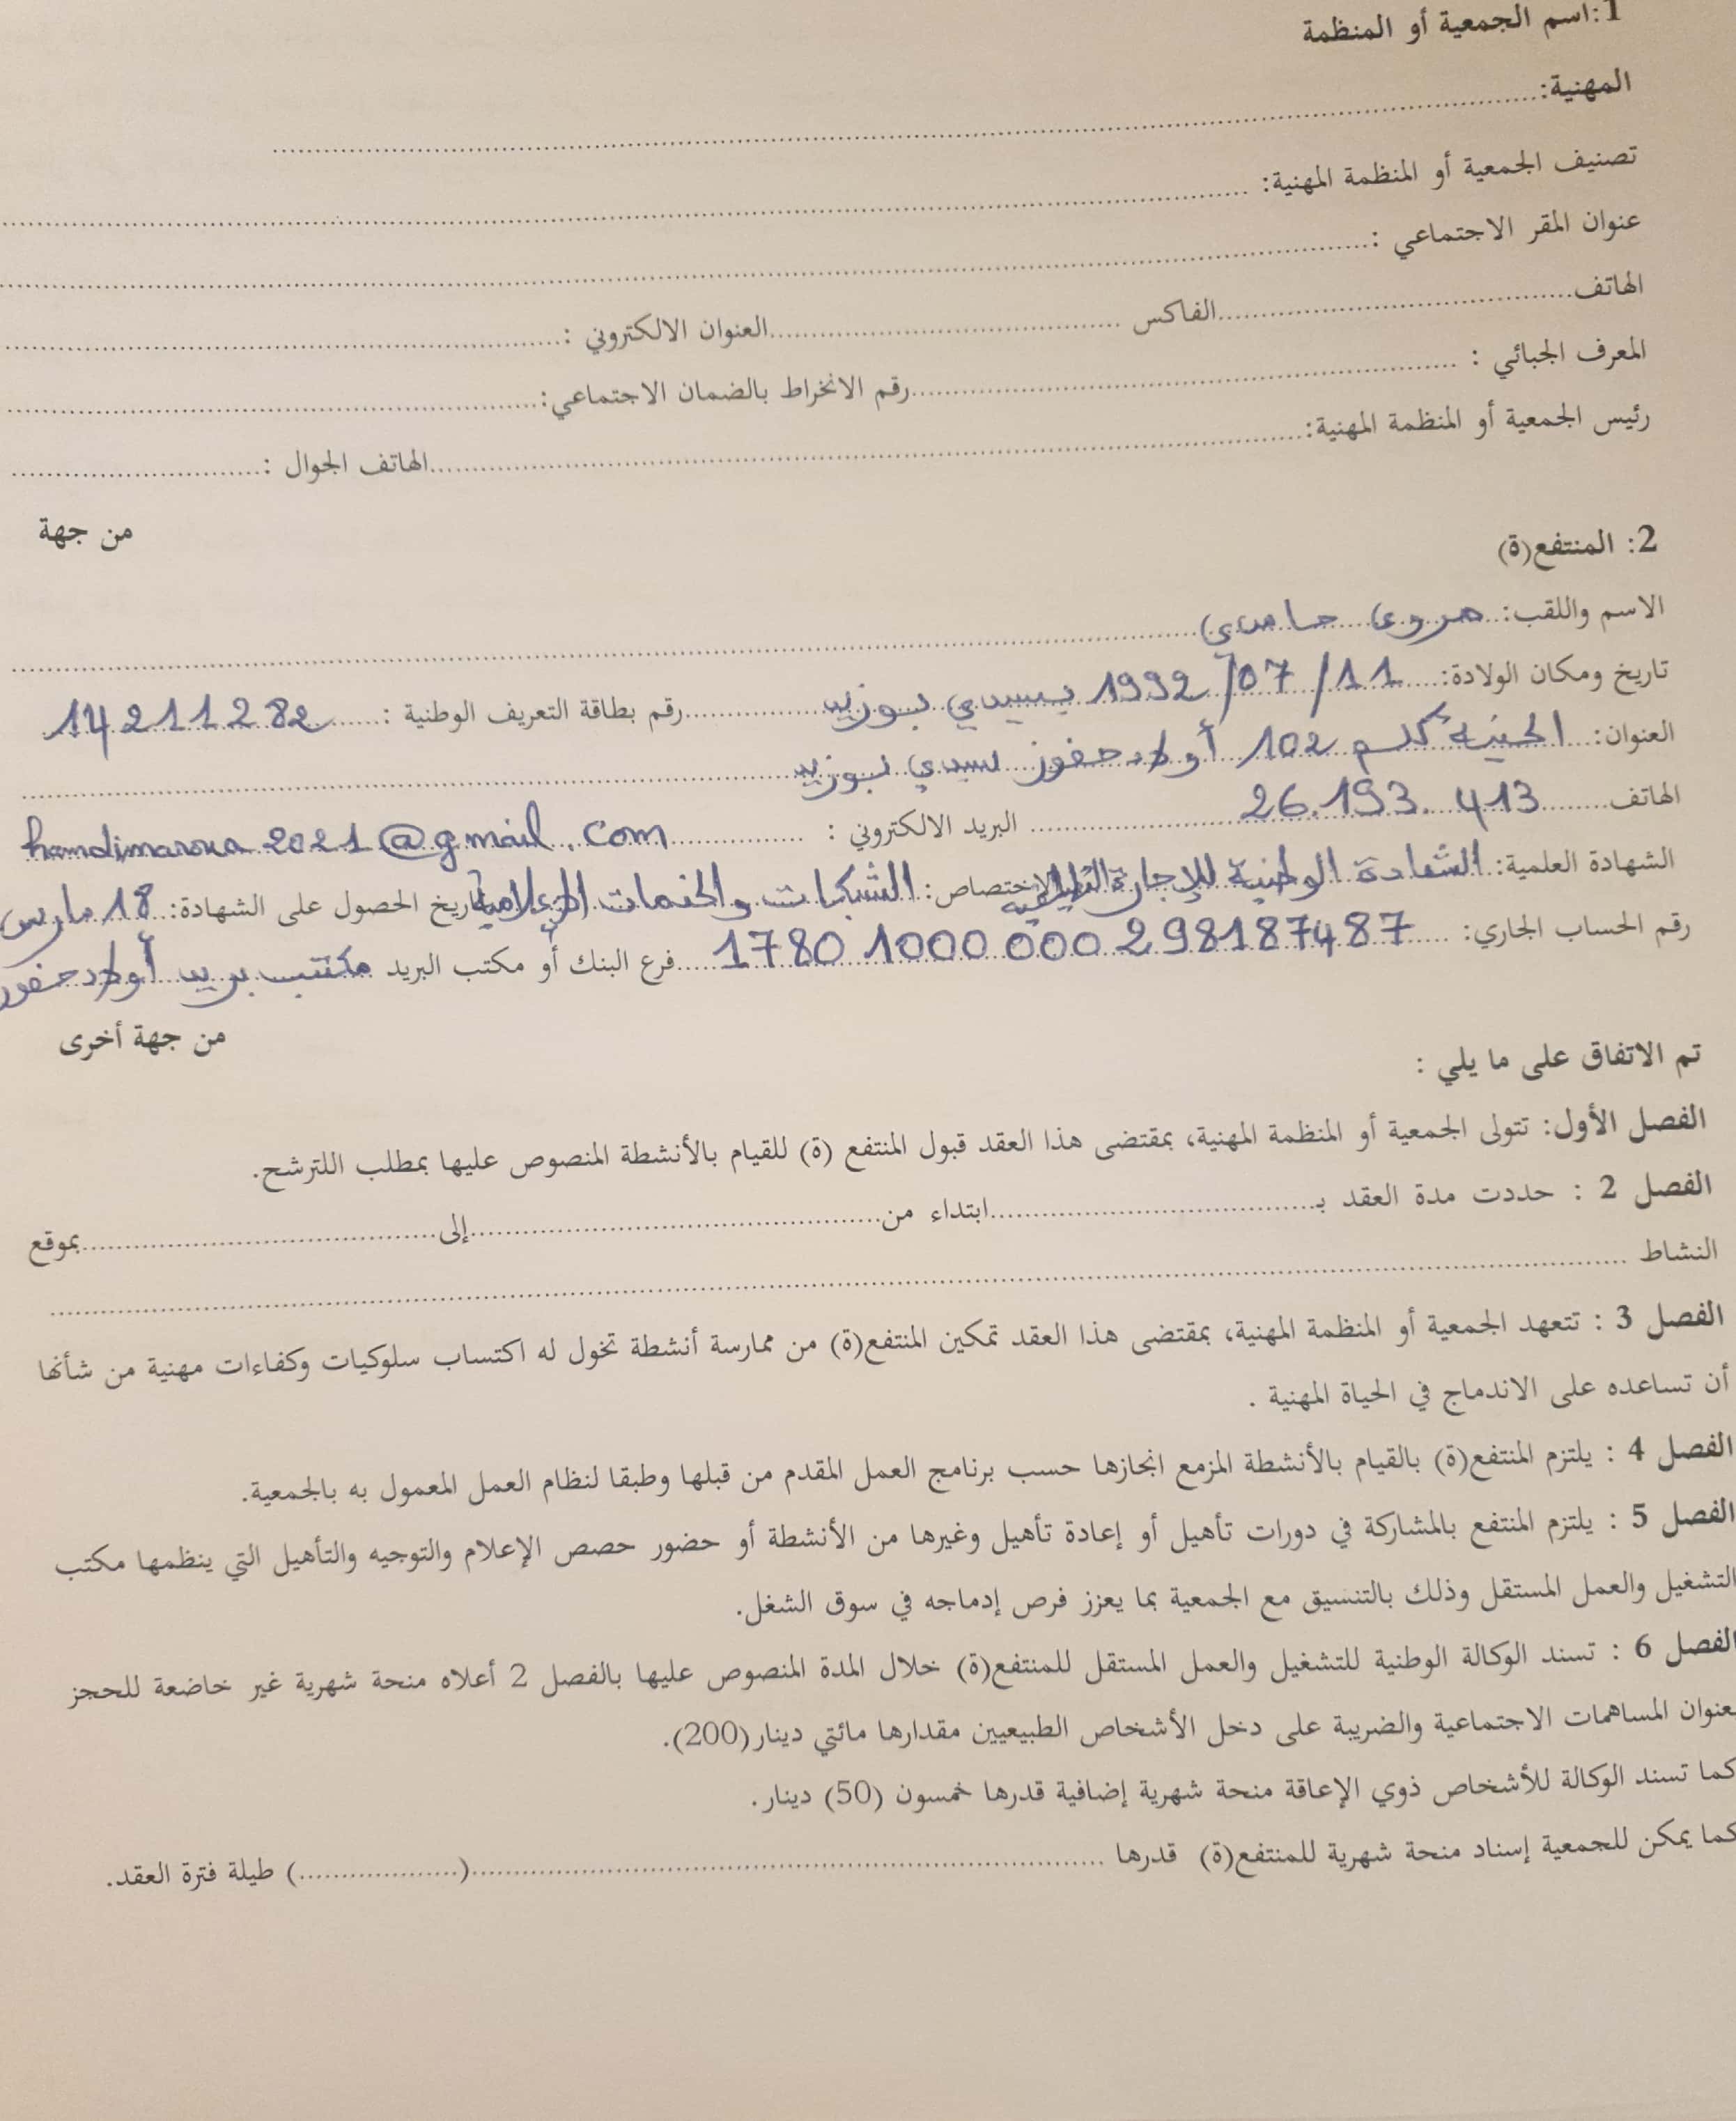 1:اسم الجمعية أو المنظمة
المهنية:......................................................
تصنيف الجمعية أو المنظمة المهنية: ......................................................
عنوان المقر الاجتماعي :......................................................
الهاتف...........................الفاكس ...........................العنوان الالكتروني :...........................
المعرف الجبائي : ...........................رقم الانخراط بالضمان الاجتماعي:...........................
رئيس الجمعية أو المنظمة المهنية:...........................الهاتف الجوال :...........................
من جهة
2: المنتفع(ة)
الاسم واللقب: مروى حامدي
تاريخ ومكان الولادة: 11/07/1992 بسيدي بوزيد رقم بطاقة التعريف الوطنية : 14211282
العنوان: كلم 102 أولاد حفوز سيدي بوزيد
الهاتف 26.193.413 البريد الالكتروني : hamdimarwa2021@gmail.com
الشهادة العلمية: الشهادة الوطنية للإجازة التطبيقية الاختصاص: الشبكات والخدمات الإعلامية تاريخ الحصول على الشهادة: 18 مارس
رقم الحساب الجاري: 17801000000298187487 فرع البنك أو مكتب البريد مكتب بريد أولاد حفوز
من جهة أخرى
تم الاتفاق على ما يلي :
الفصل الأول: تتولى الجمعية أو المنظمة المهنية، بمقتضى هذا العقد قبول المنتفع (ة) للقيام بالأنشطة المنصوص عليها بمطلب اللترشح.
الفصل 2 : حددت مدة العقد بـ...........................ابتداء من...........................إلى...........................بموقع
النشاط ......................................................
الفصل 3 : تتعهد الجمعية أو المنظمة المهنية، بمقتضى هذا العقد تمكين المنتفع(ة) من ممارسة أنشطة تخول له اكتساب سلوكيات وكفاءات مهنية من شأنها
أن تساعده على الاندماج في الحياة المهنية .
الفصل 4 : يلتزم المنتفع(ة) بالقيام بالأنشطة المزمع انجازها حسب برنامج العمل المقدم من قبلها وطبقا لنظام العمل المعمول به بالجمعية.
الفصل 5 : يلتزم المنتفع بالمشاركة في دورات تأهيل أو إعادة تأهيل وغيرها من الأنشطة أو حضور حصص الإعلام والتوجيه والتأهيل التي ينظمها مكتب
التشغيل والعمل المستقل وذلك بالتنسيق مع الجمعية بما يعزز فرص إدماجه في سوق الشغل.
الفصل 6 : تسند الوكالة الوطنية للتشغيل والعمل المستقل للمنتفع(ة) خلال المدة المنصوص عليها بالفصل 2 أعلاه منحة شهرية غير خاضعة للحجز
بعنوان المساهمات الاجتماعية والضريبة على دخل الأشخاص الطبيعيين مقدارها مائتي دينار(200).
كما تسند الوكالة للأشخاص ذوي الإعاقة منحة شهرية إضافية قدرها خمسون (50) دينار.
كما يمكن للجمعية إسناد منحة شهرية للمنتفع(ة) قدرها ...........................(...................) طيلة فترة العقد.